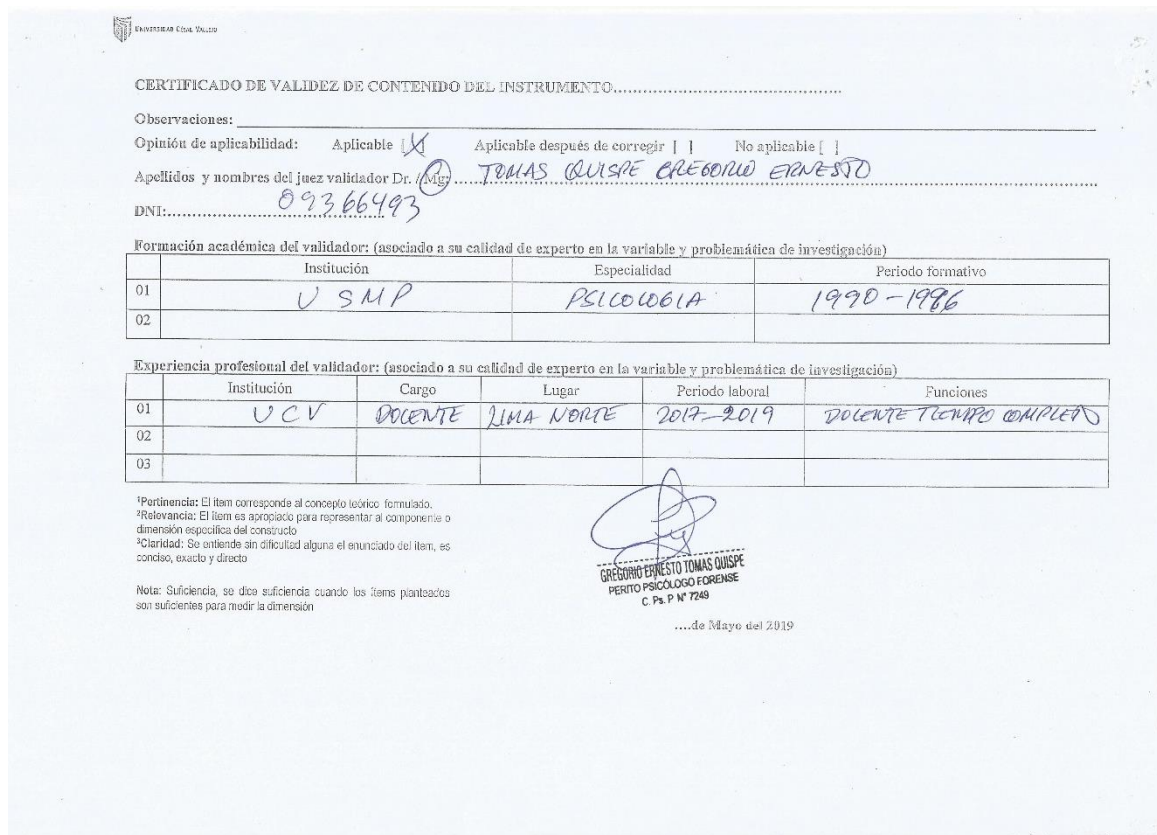 UNIVERSIDAD CÉSAR VALLEJO
CERTIFICADO DE VALIDEZ DE CONTENIDO DEL INSTRUMENTO..............................................
Observaciones: ______________________________
Opinión de aplicabilidad: Aplicable [X] Aplicable después de corregir [ ] No aplicable [ ]
Apellidos y nombres del juez validador Dr. / Mg: TOMAS QUISPE GREGORIO ERNESTO
DNI: 09366493
Formación académica del validador: (asociado a su calidad de experto en la variable y problemática de investigación)
Institución Especialidad Periodo formativo
01 USMP PSICOLOGIA 1990-1996
02
Experiencia profesional del validador: (asociado a su calidad de experto en la variable y problemática de investigación)
Institución Cargo Lugar Periodo laboral Funciones
01 UCV DOCENTE LIMA NORTE 2017-2019 DOCENTE TIEMPO COMPLETO
02
03
¹Pertinencia: El ítem corresponde al concepto teórico formulado.
²Relevancia: El ítem es apropiado para representar al componente o
dimensión específica del constructo
³Claridad: Se entiende sin dificultad alguna el enunciado del ítem, es
conciso, exacto y directo
Nota: Suficiencia, se dice suficiencia cuando los ítems planteados
son suficientes para medir la dimensión
GREGORIO ERNESTO TOMAS QUISPE
PERITO PSICÓLOGO FORENSE
C. Ps. P N° 7249
....de Mayo del 2019